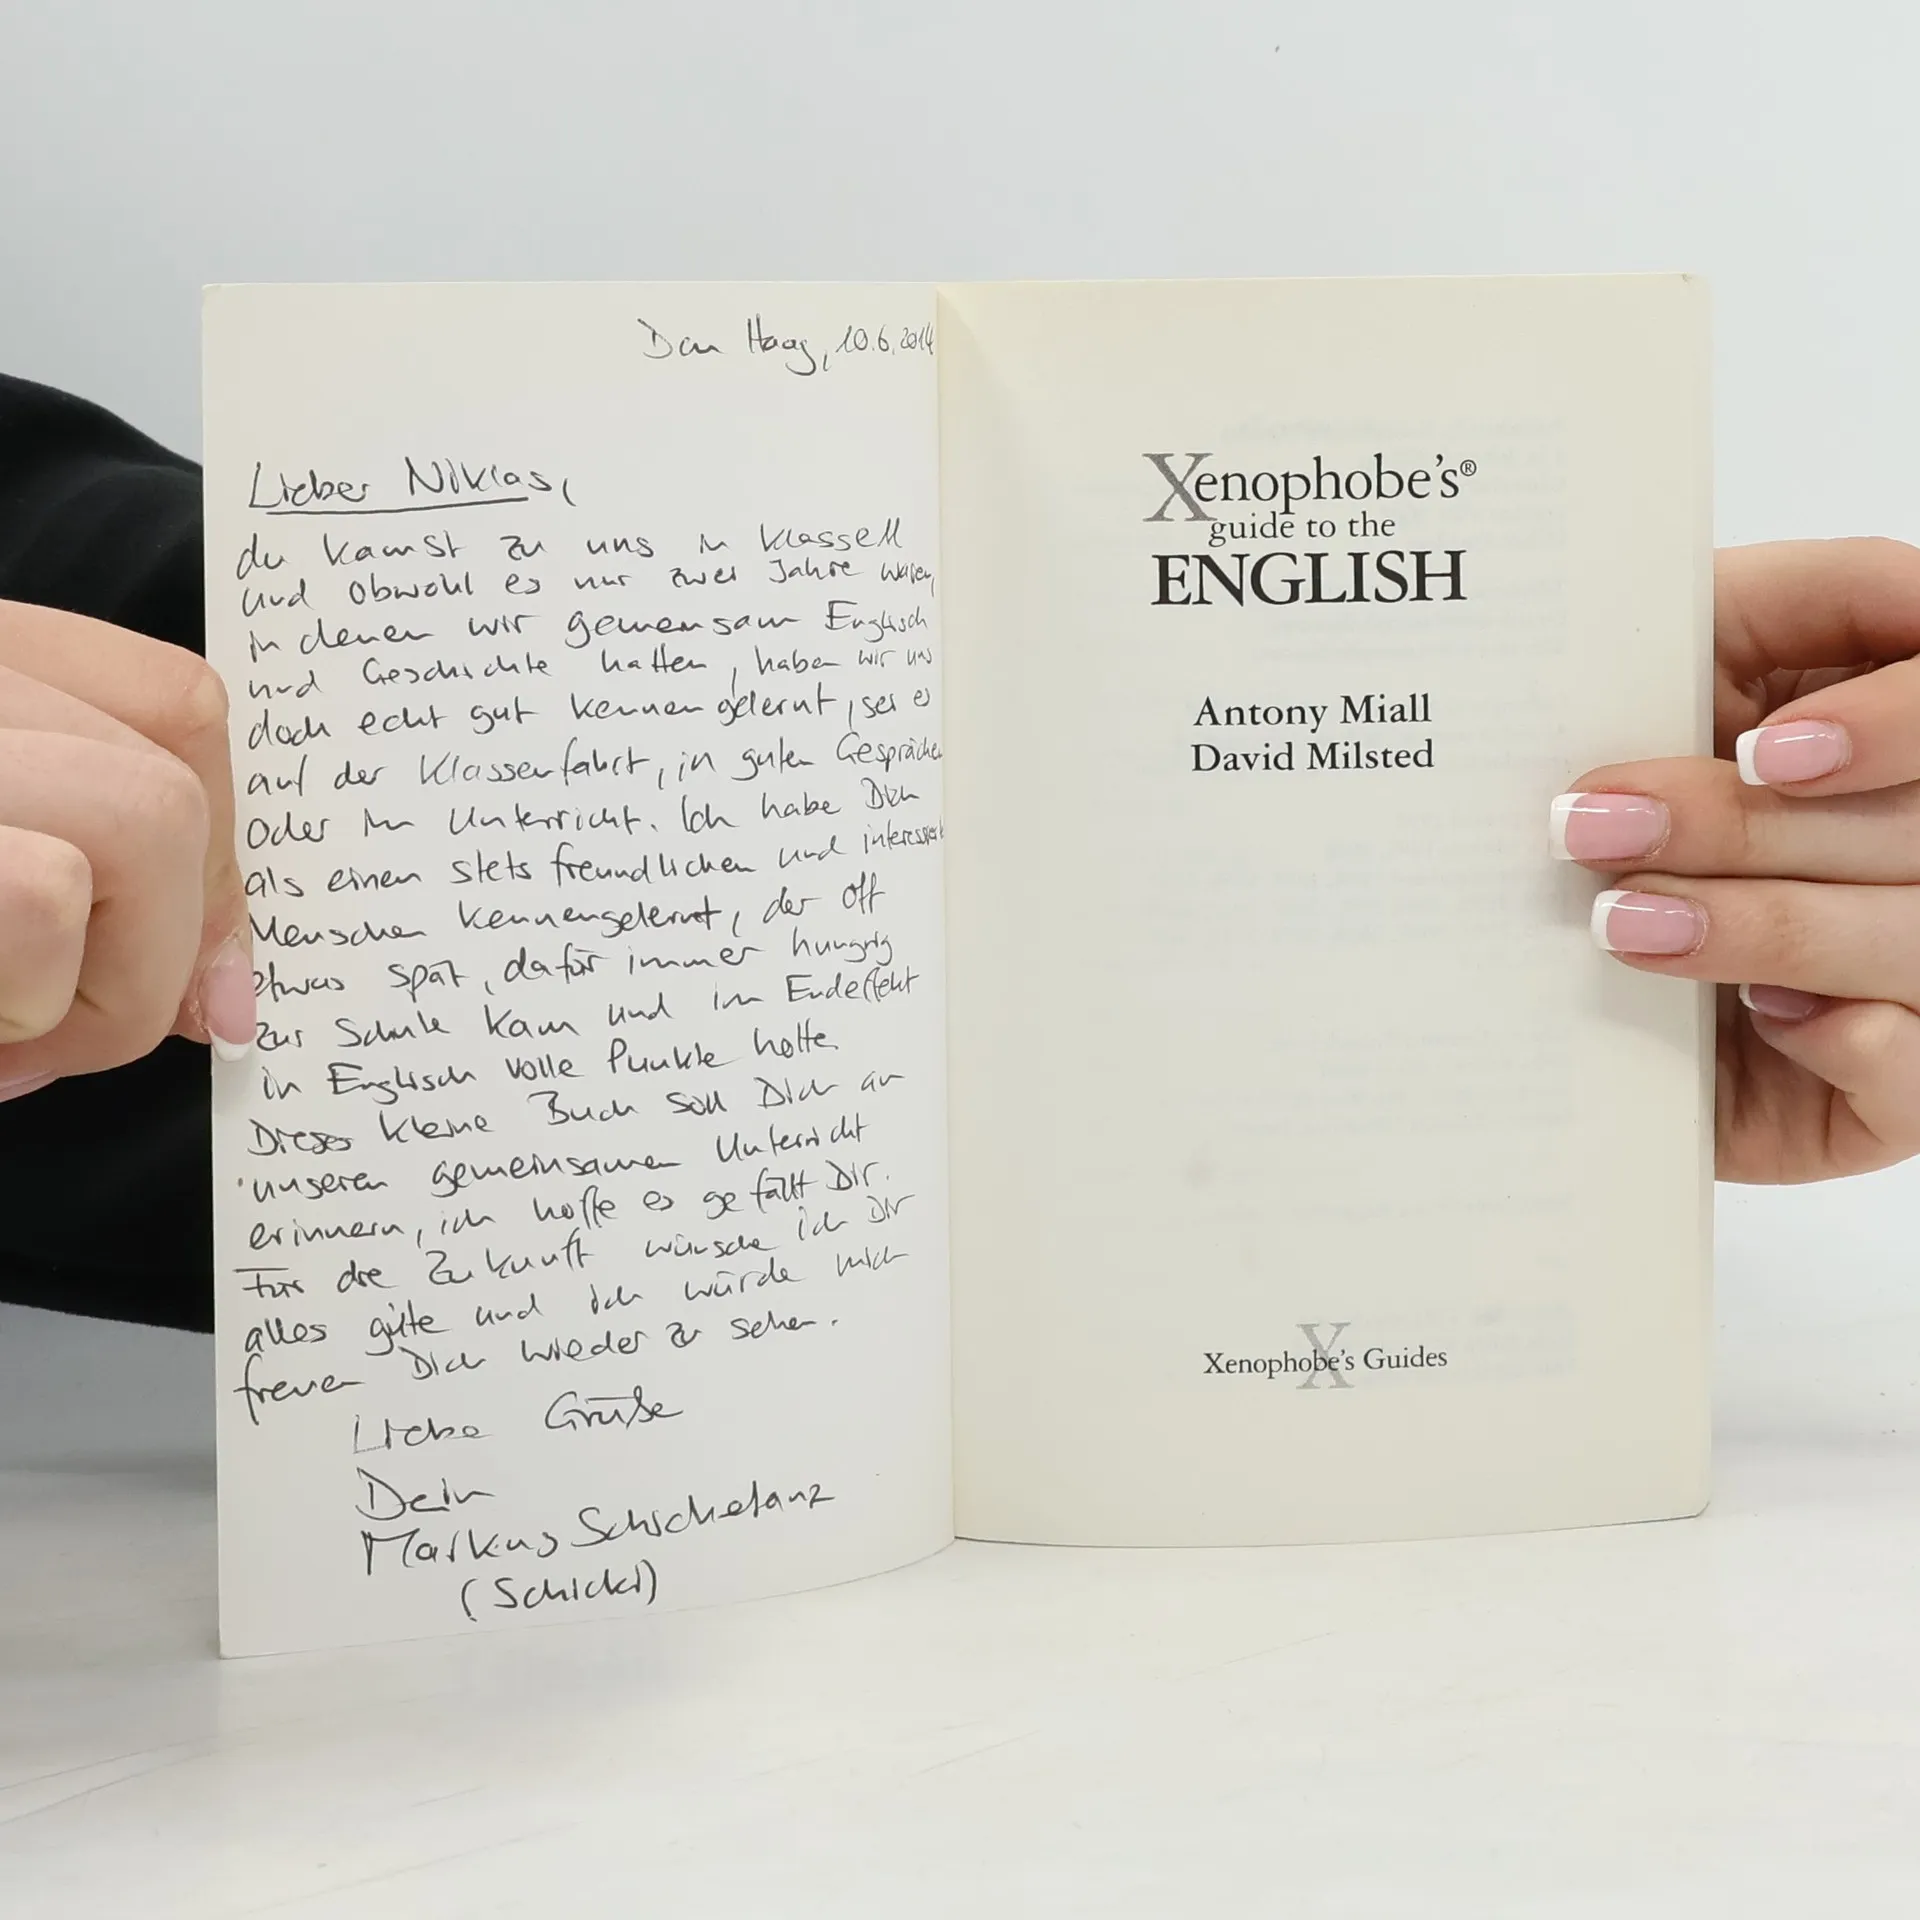 Den Haag, 10.6.2014
Lieber Niklas,
du kamst zu uns in Klasse 11
und obwohl es nur zwei Jahre waren,
in denen wir gemeinsam Englisch
und Geschichte hatten, haben wir uns
doch echt gut kennengelernt, sei es
auf der Klassenfahrt, in guten Gesprächen
oder im Unterricht. Ich habe Dich
als einen stets freundlichen und interessierten
Menschen kennengelernt, der oft
etwas spät, dafür immer hungrig
zur Schule kam und im Endeffekt
in Englisch volle Punkte holte.
Dieses kleine Buch soll Dich an
unseren gemeinsamen Unterricht
erinnern, ich hoffe es gefällt Dir.
Für die Zukunft wünsche ich Dir
alles gute und ich würde mich
freuen Dich wieder zu sehen.
Liebe Grüße
Dein
Markus Schicketanz
(Schicki)
Xenophobe's®
guide to the
ENGLISH
Antony Miall
David Milsted
Xenophobe's Guides